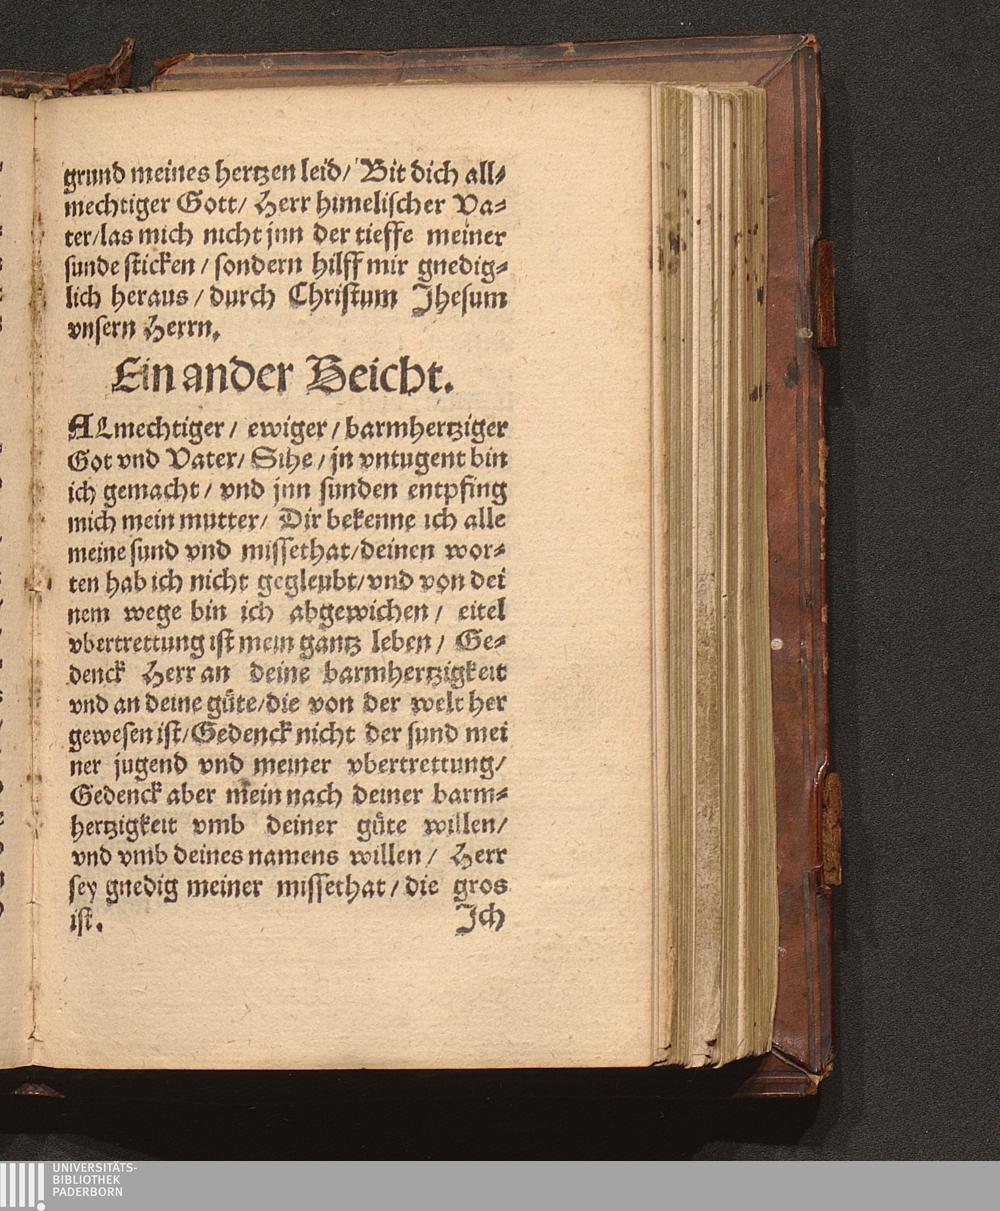 grund meines hertzen leid/ Bit dich all⸗
mechtiger Gott/ Herr himelischer Va⸗
ter/las mich nicht jnn der tieffe meiner
sunde sticken / sondern hilff mir gnedig⸗
lich heraus / durch Christum Jhesum
vnsern Herrn.
Ein ander Beicht.
ALmechtiger / ewiger / barmhertziger
Got vnd Vater/ Sihe / jn vntugent bin
ich gemacht / vnd jnn sunden entpfing
mich mein mutter/ Dir bekenne ich alle
meine sund vnd missethat/deinen wor⸗
ten hab ich nicht gegleubt/vnd von dei
nem wege bin ich abgewichen / eitel
vbertrettung ist mein gantz leben / Ge⸗
denck Herr an deine barmhertzigkeit
vnd an deine güte/die von der welt her
gewesen ist/Gedenck nicht der sund mei
ner jugend vnd meiner vbertrettung/
Gedenck aber mein nach deiner barm⸗
hertzigkeit vmb deiner güte willen/
vnd vmb deines namens willen / Herr
sey gnedig meiner missethat / die gros
ist. Jch
UNIVERSITÄTS-
BIBLIOTHEK
PADERBORN